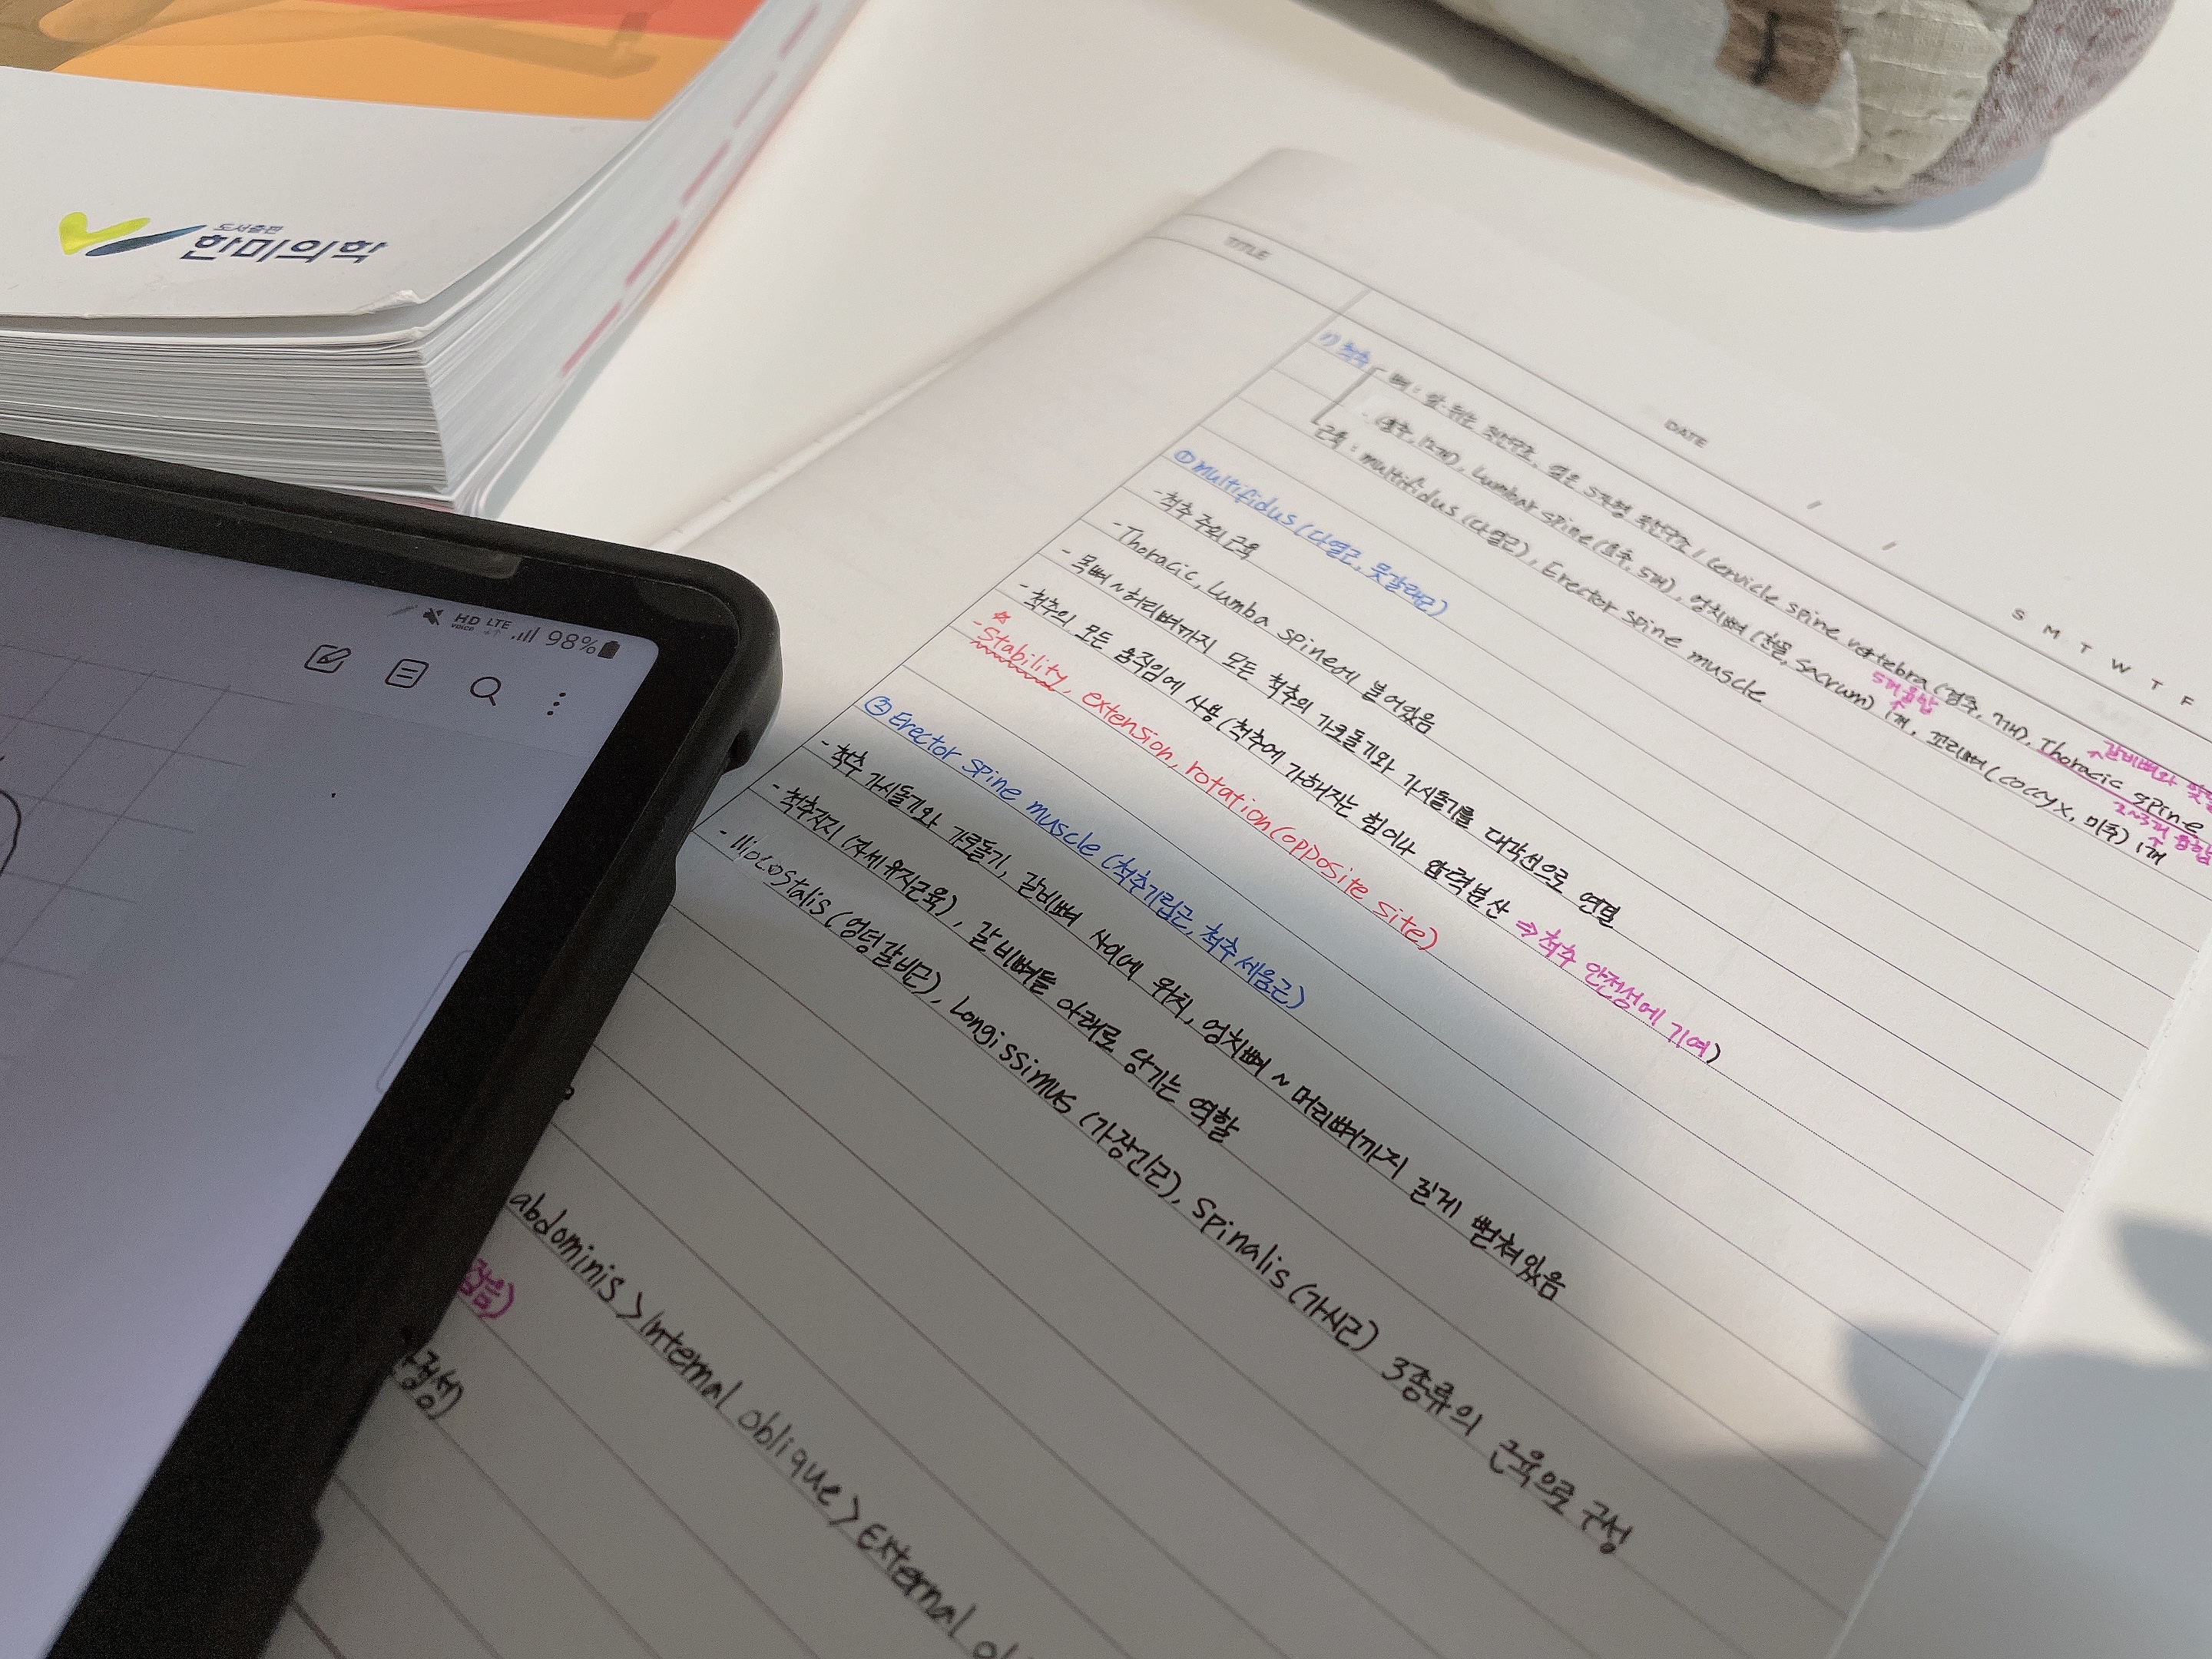 도서출판
한미의학
HD VOICE LTE 98%
TITLE
DATE
S M T W T F
1) 척추
뼈 :
Cervicle spine vertebra (경추, 7개), Thoracic spine
갈비뼈와
(흉추, 12개), Lumbar spine (요추, 5개), 엉치뼈 (천골, Sacrum) 1개, 꼬리뼈 (coccyx, 미추) 1개
5개 융합
2~3개 융합
근육 : multifidus (다열근), Erector spine muscle
① Multifidus (다열근, 뭇갈래근)
- 척추 주외근육
- Thoracic, Lumba spine에 붙어있음
- 목뼈 ~ 허리뼈까지 모든 척추의 가로돌기와 가시돌기를 대각선으로 연결
- 척추의 모든 움직임에 사용 (척추에 가해지는 힘이나 압력분산 ⇒ 척추 안정성에 기여)
☆
- Stability, extension, rotation (opposite site)
② Erector spine muscle (척추기립근, 척추세움근)
- 척추 가시돌기와 가로돌기, 갈비뼈 사이에 위치, 엉치뼈 ~ 머리뼈까지 길게 뻗쳐있음
- 척추지지 (자세유지근육), 갈비뼈들 아래로 당기는 역할
- Iliocostalis (엉덩갈비근), Longissimus (가장긴근), Spinalis (가시근) 3종류의 근육으로 구성
abdominis > Internal oblique > External